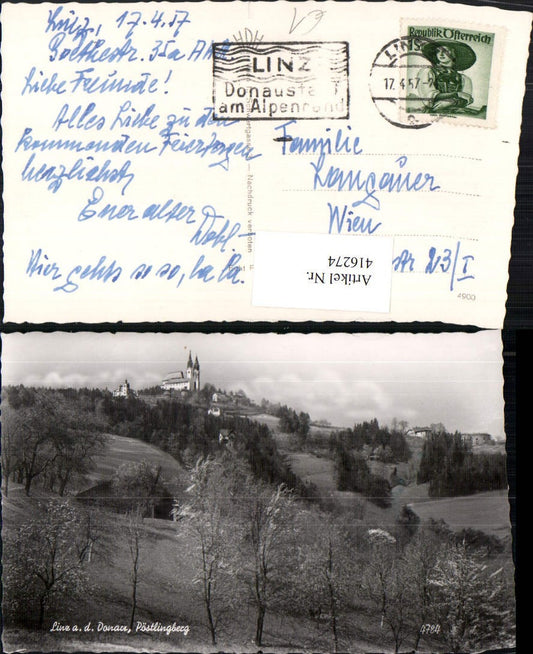 Linz, 17.4.57
Goethestr. 35a
Liebe Freunde!
Alles Liebe zu den
kommenden Feiertagen
herzlichst
Euer alter
Hier gehts so so, la la.
LINZ
Donaustadt
am Alpenrand
LINZ
17.4.57
Republik Österreich
Nachdruck verboten
Familie
Langauer
Wien
str 23/I
Artikel Nr.
416274
Linz a. d. Donau, Pöstlingberg
4794